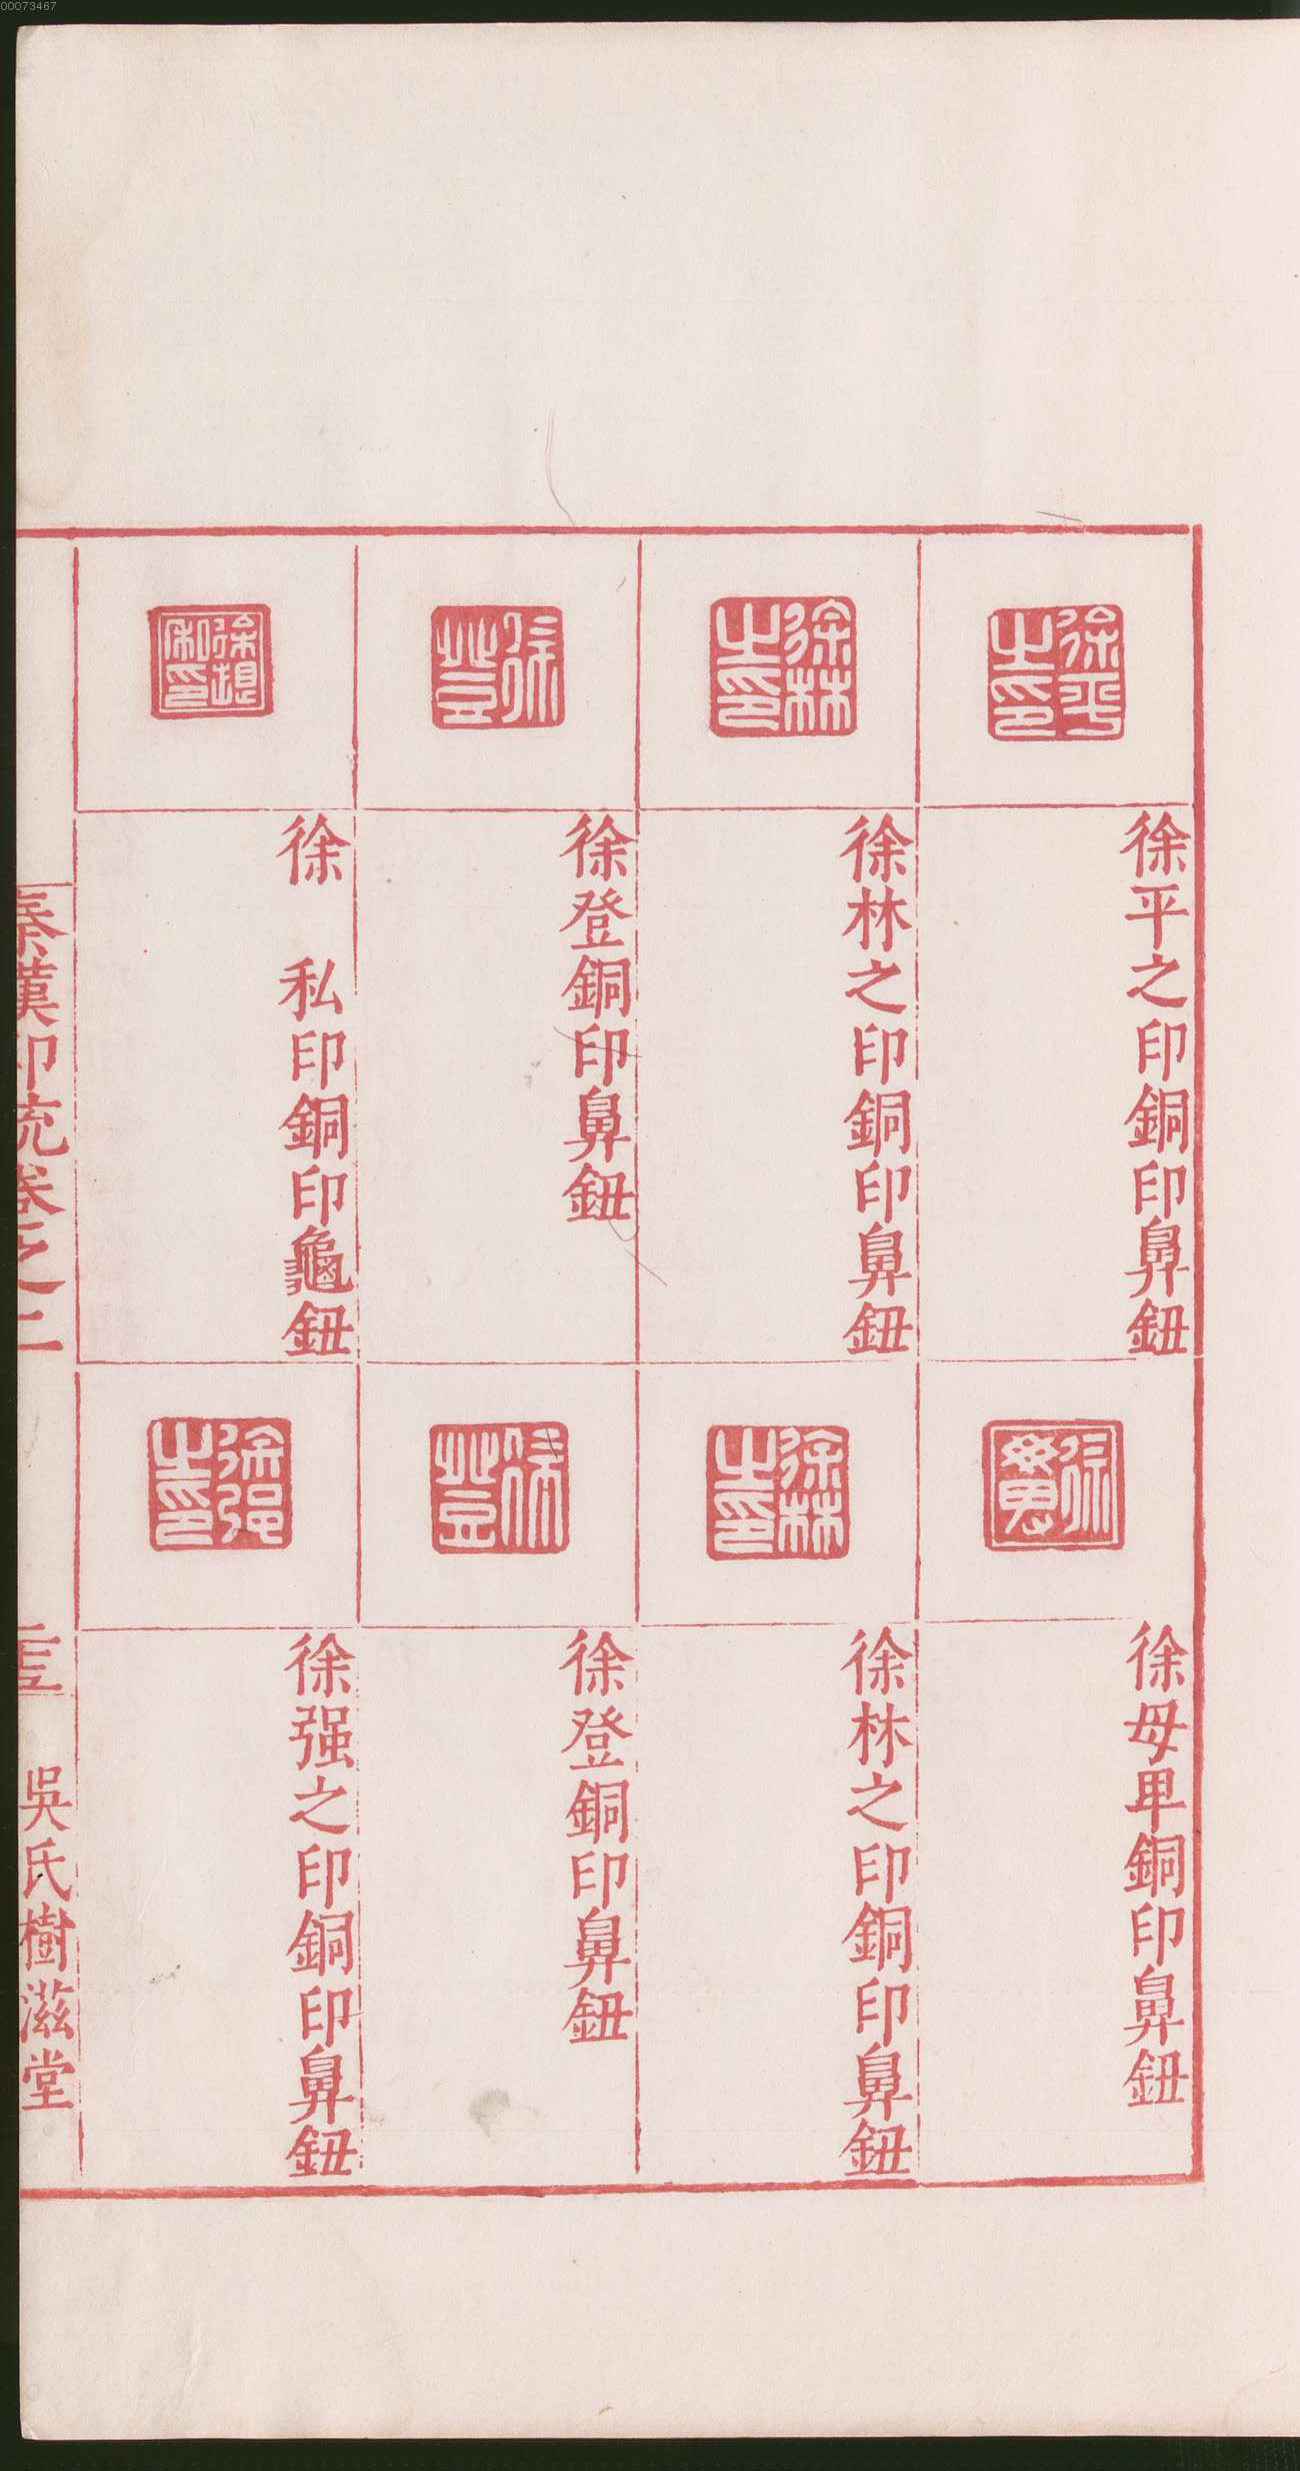 00073467
徐平之印
徐平之印銅印鼻鈕
徐林之印
徐林之印銅印鼻鈕
徐登
徐登銅印鼻鈕
私印
徐　私印銅印龜鈕
徐母甲銅印鼻鈕
徐林之印
徐林之印銅印鼻鈕
徐登
徐登銅印鼻鈕
徐强之印
徐强之印銅印鼻鈕
秦漢印統卷之二
吳氏樹滋堂